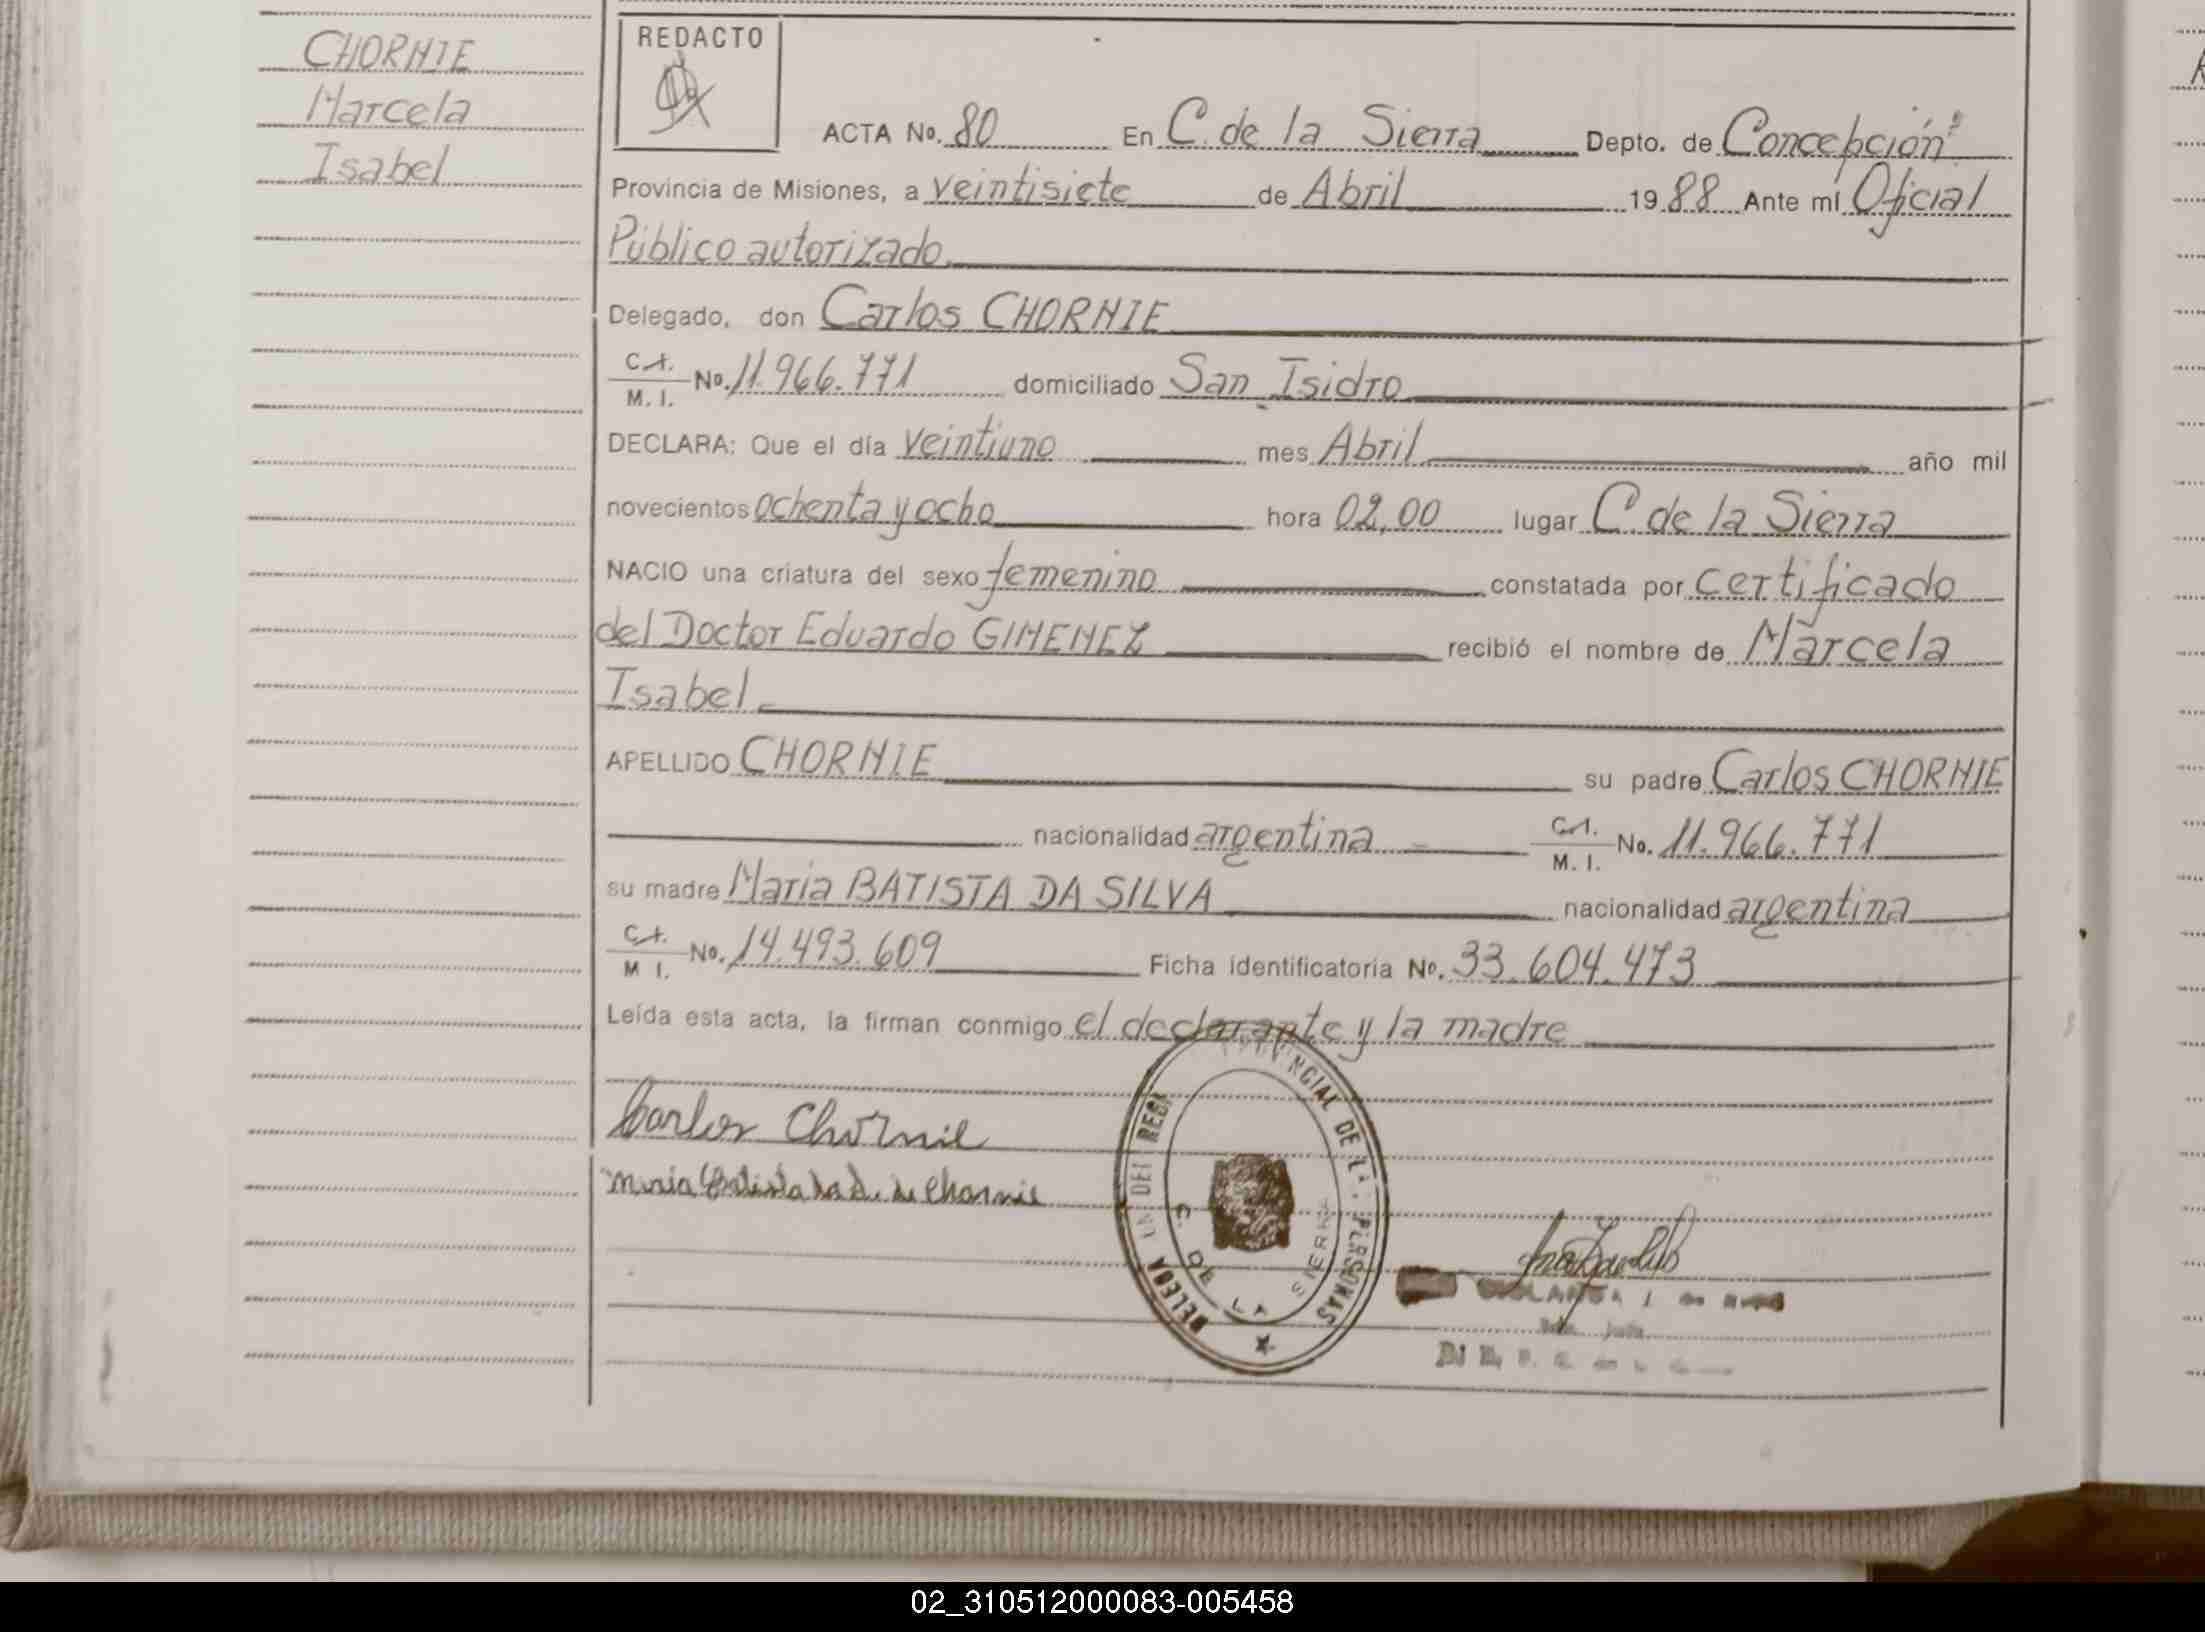 CHORNIE
Marcela
Isabel
REDACTO
ACTA No. 80 En C. de la Sierra Depto. de Concepción
Provincia de Misiones, a veintisiete de Abril 1988 Ante mí Oficial
Público autorizado
Delegado, don Carlos CHORNIE
C.I. M.I. No. 11.966.771 domiciliado San Isidro
DECLARA: Que el día veintiuno mes Abril año mil
novecientos ochenta y ocho hora 02,00 lugar C. de la Sierra
NACIO una criatura del sexo femenino constatada por certificado
del Doctor Eduardo GIMENEZ recibió el nombre de Marcela
Isabel
APELLIDO CHORNIE su padre Carlos CHORNIE
nacionalidad argentina C.I. M.I. No. 11.966.771
su madre Maria BATISTA DA SILVA nacionalidad argentina
C.I. M I. No. 14.493.609 Ficha identificatoria No. 33.604.473
Leída esta acta, la firman conmigo el declarante y la madre
Carlos Chornie
Maria Batista da S. de Chornie
DEL REG
NCIAL DE L. PERSONAS
C. DE LA SIERRA
02_310512000083-005458